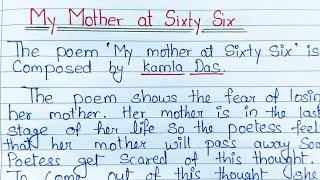 My Mother at Sixty Six
The poem 'My mother at Sixty Six' is
Composed by Kamla Das.
The Poem shows the fear of losin
her mother. Her mother is in the last
stage of her life So the poetess feel
that her mother will pass away Soo
Poetess get scared of this thought.
To Come out of this thought she